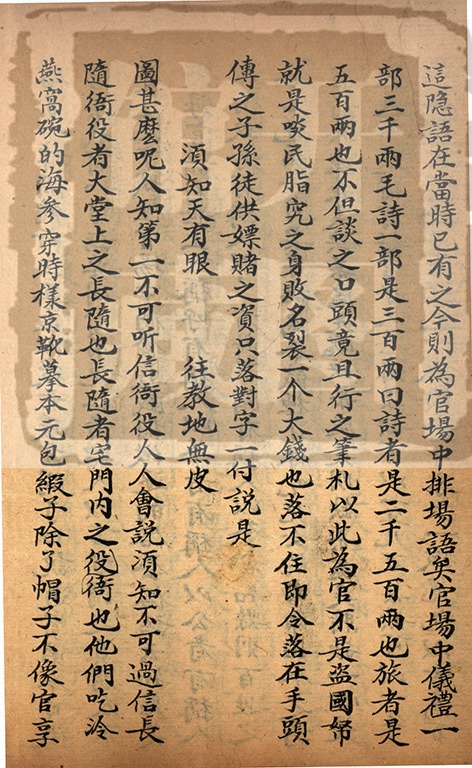 這隐語在當時已有之今則為官場中排場語矣官場中儀禮一
部三千兩毛詩一部是三百兩曰詩者是二千五百兩也旅者是
五百兩也不但談之口頭竟且行之筆札以此為官不是盜國帑
就是啖民脂究之身敗名裂一个大錢也落不住即令落在手頭
傳之子孫徒供嫖賭之資只落對字一付說是
須知天有眼　往教地無皮
圖甚麽呢人知第一不可听信衙役人人會說須知不可過信長
隨衙役者大堂上之長隨也長隨者宅門內之役衙也他們吃冷
燕窩碗的海参穿時樣京靴摹本元色緞子除了帽子不像官享